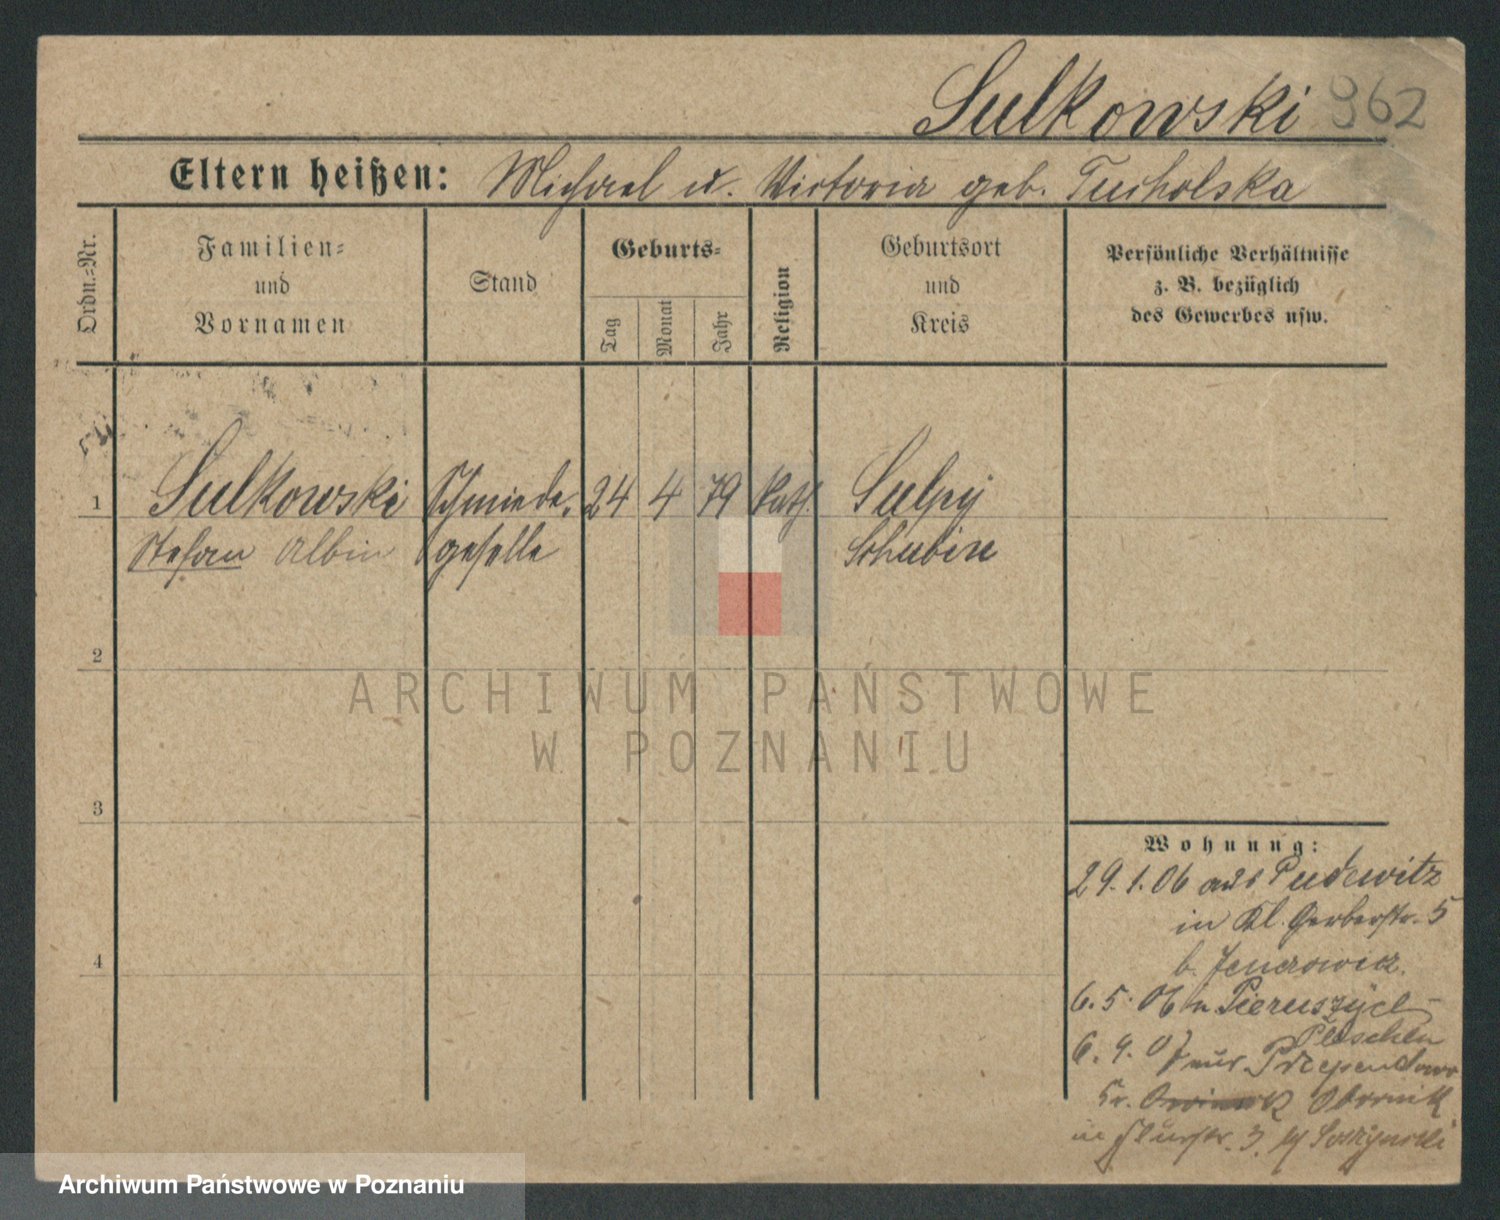 Sulkowski 962
Eltern heißen: Michael u. Victoria geb. Tucholska
Ordn.=Nr.
Familien=
und
Vornamen
Stand
Geburts=
Tag
Monat
Jahr
Religion
Geburtsort
und
Kreis
Persönliche Verhältnisse
z. B. bezüglich
des Gewerbes usw.
1 Sulkowski Schmiede= 24 4 79 kath.
Stefan Albin geselle Schubin
2
3
4
ARCHIWUM PAŃSTWOWE
W POZNANIU
Wohnung:
29.1.06 aus Pudewitz
in Kl. Gerberstr. 5
b.
6.5.06 n Pieruszyce
Pleschen
6.9.07 aus
Kr. Obornik
in 3.
Archiwum Państwowe w Poznaniu